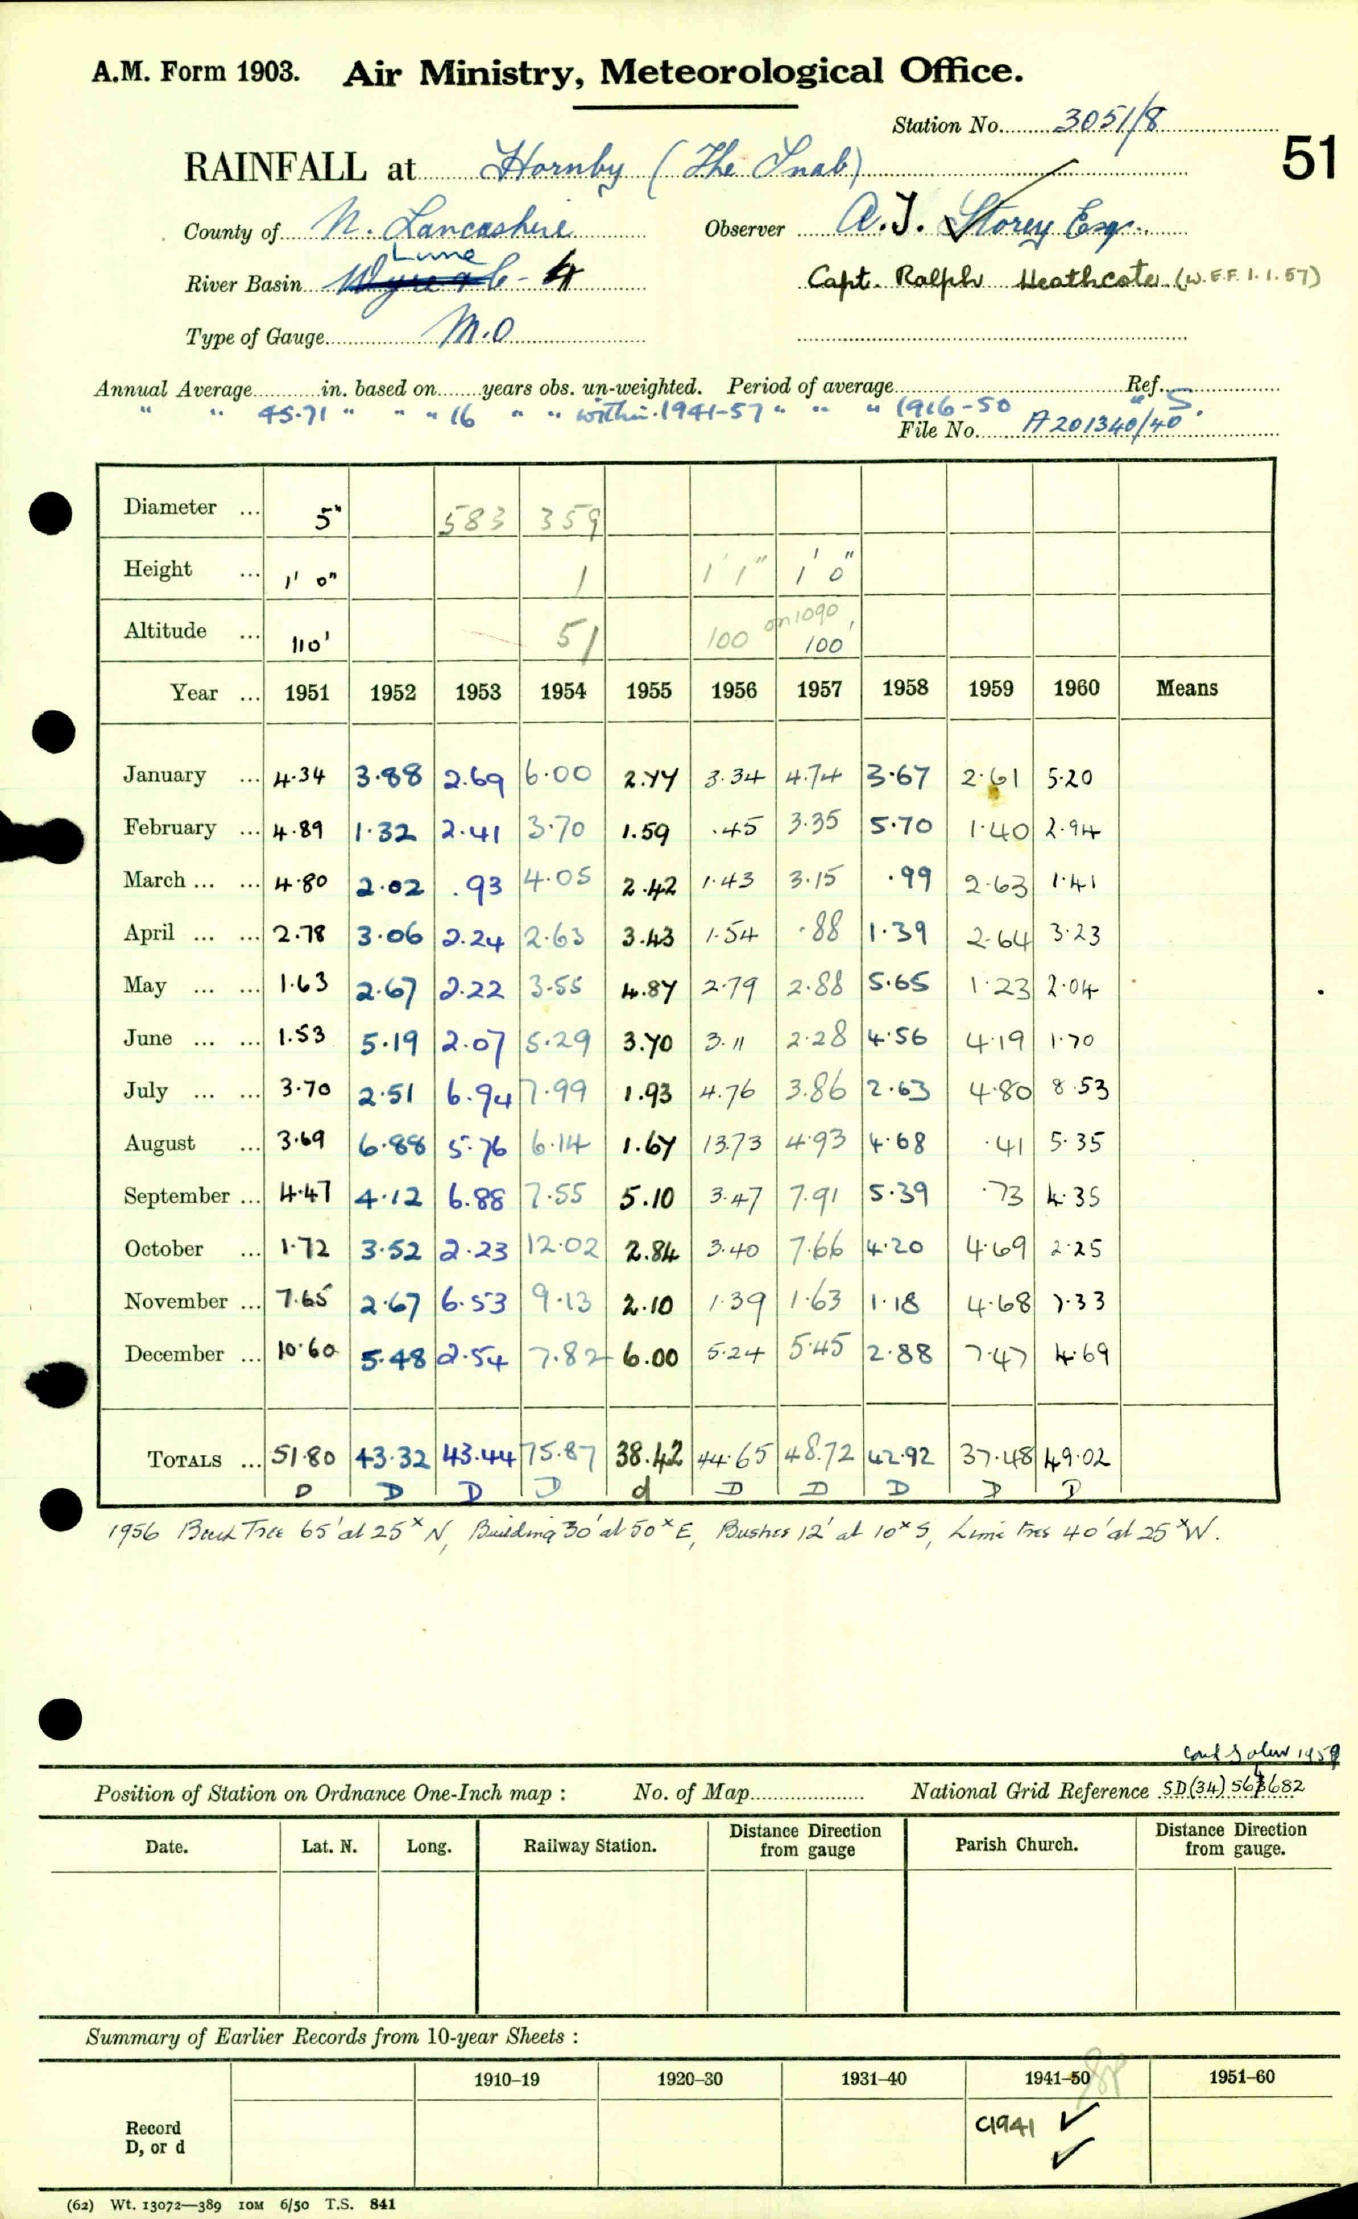 A.M. Form 1903. Air Ministry, Meteorological Office.
Station No. 3051/8
51
RAINFALL at Hornby (The Snab)
County of N. Lancashire Observer A.J. Storey Esq.
Lune
River Basin Wyre - 4 Capt. Ralph Heathcote (W.E.F. 1.1.57)
Type of Gauge M.O
Annual Average in. based on years obs. un-weighted. Period of average Ref.
" " 45.71 " " " 16 " " within 1941-57 " " " 1916-50 " S.
File No. A201340/40
Diameter ... 5" 583 359
Height ... 1' 0" 1 1' 1" 1' 0"
Altitude ... 110' 51 100 on 1090 100'
Year ... 1951 1952 1953 1954 1955 1956 1957 1958 1959 1960 Means
January ... 4.34 3.88 2.69 6.00 2.77 3.34 4.74 3.67 2.61 5.20
February ... 4.89 1.32 2.41 3.70 1.59 .45 3.35 5.70 1.40 2.94
March ... ... 4.80 2.02 .93 4.05 2.42 1.43 3.15 .99 2.63 1.41
April ... ... 2.78 3.06 2.24 2.63 3.43 1.54 .88 1.39 2.64 3.23
May ... ... 1.63 2.67 2.22 3.55 4.87 2.79 2.88 5.65 1.23 2.04
June ... ... 1.53 5.19 2.07 5.29 3.70 3.11 2.28 4.56 4.19 1.70
July ... ... 3.70 2.51 6.94 7.99 1.93 4.76 3.86 2.63 4.80 8.53
August ... 3.69 6.88 5.76 6.14 1.67 13.73 4.93 4.68 .41 5.35
September ... 4.47 4.12 6.88 7.55 5.10 3.47 7.91 5.39 .73 4.35
October ... 1.72 3.52 2.23 12.02 2.84 3.40 7.66 4.20 4.69 2.25
November ... 7.65 2.67 6.53 9.13 2.10 1.39 1.63 1.18 4.68 7.33
December ... 10.60 5.48 2.54 7.82 6.00 5.24 5.45 2.88 7.47 4.69
TOTALS ... 51.80 43.32 43.44 75.87 38.42 44.65 48.72 42.92 37.48 49.02
D D D D d D D D D D
1956 Beech Tree 65' at 25x N, Building 30' at 50x E, Bushes 12' at 10x S, Lime Tree 40' at 25x W.
1959
Position of Station on Ordnance One-Inch map : No. of Map National Grid Reference SD(34) 564682
Date. Lat. N. Long. Railway Station. Distance from Direction gauge Parish Church. Distance from Direction gauge.
Summary of Earlier Records from 10-year Sheets :
1910–19 1920–30 1931–40 1941–50 1951–60
Record C1941 ✓
D, or d ✓
(62) Wt. 13072—389 10M 6/50 T.S. 841